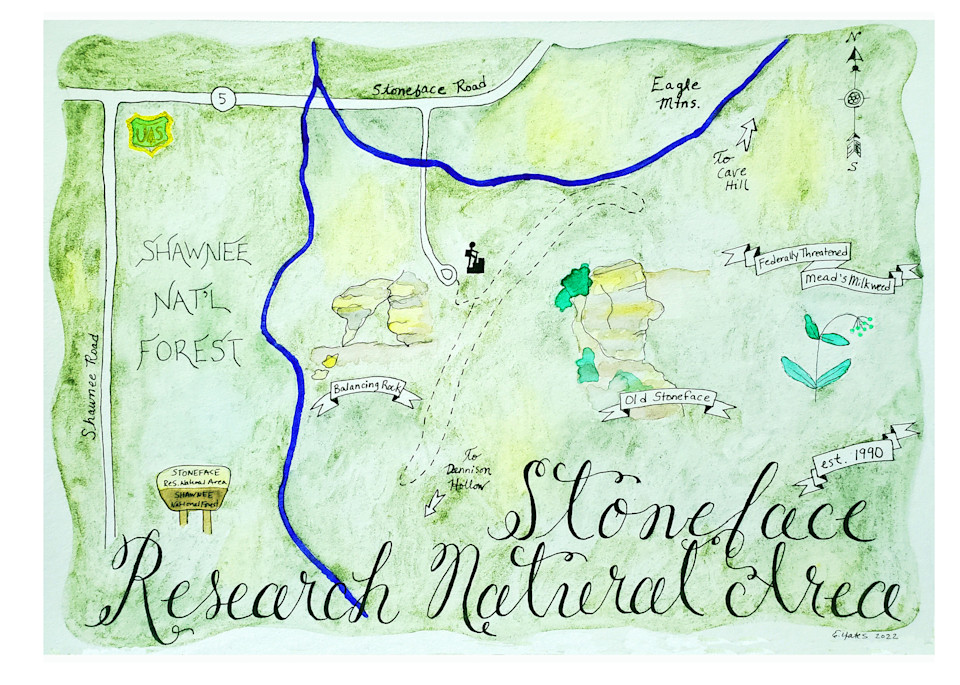 N
Stoneface Road
Eagle
Mtns.
5
UAS
To
Cave
Hill
S
SHAWNEE
NAT'L
FOREST
Federally Threatened
Mead's Milkweed
Shawnee Road
Balancing Rock
Old Stoneface
To
Dennison
Hollow
est. 1990
STONEFACE
Res. Natural Area
SHAWNEE
National Forest
Stoneface
Research Natural Area
G. Yates 2022